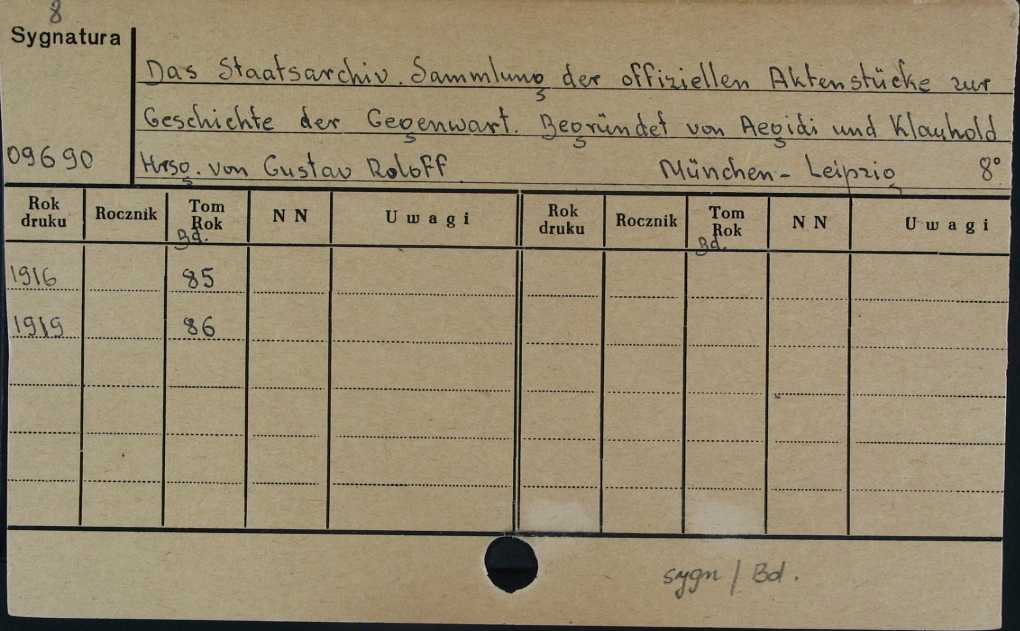 8
Sygnatura
Das Staatsarchiv. Sammlung der offiziellen Aktenstücke zur
Geschichte der Gegenwart. Begründet von Aegidi und Klauhold.
09690
Hrsg. von Gustav Roloff München - Leipzig 8°
Rok druku Rocznik Tom Rok Bd. NN Uwagi Rok druku Rocznik Tom Rok Bd. NN Uwagi
1916 85
1919 86
sygn / Bd.